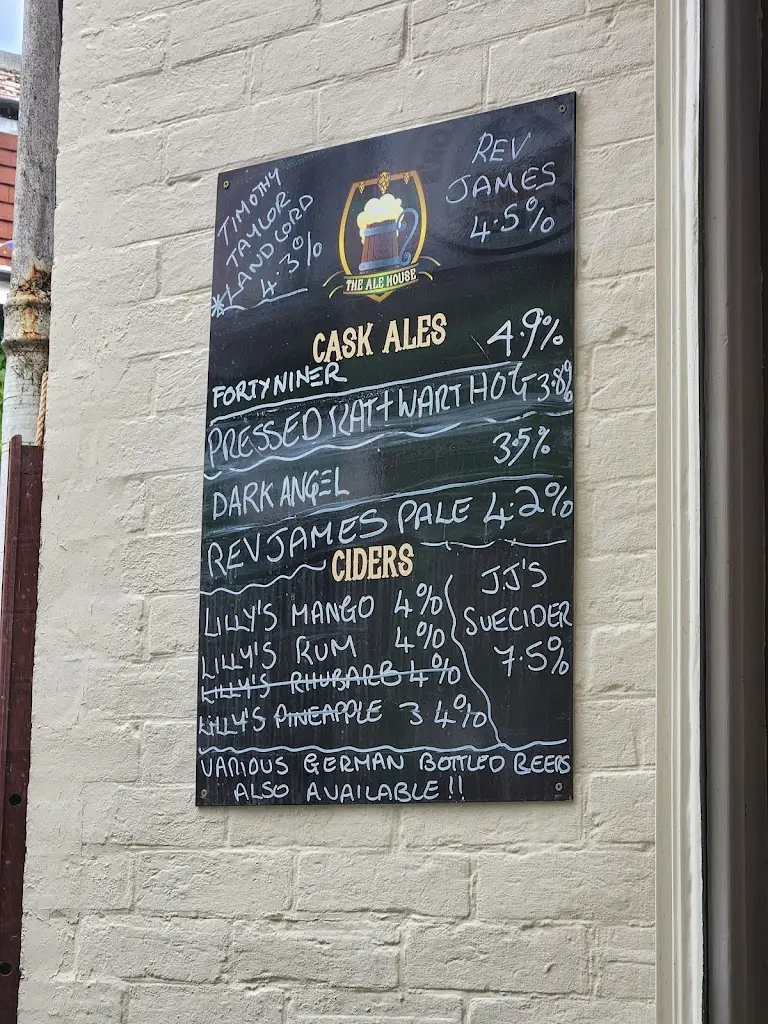 TIMOTHY
TAYLOR
*LANDLORD
4.3%
REV
JAMES
4.5%
THE ALE HOUSE
CASK ALES
FORTYNINER 4.9%
PRESSED RAT + WART HOG 3.8%
DARK ANGEL 3.5%
REV JAMES PALE 4.2%
CIDERS
LILLY'S MANGO 4%
LILLY'S RUM 4%
LILLY'S RHUBARB 4%
LILLY'S PINEAPPLE 3 4%
J.J'S
SUECIDER
7.5%
VARIOUS GERMAN BOTTLED BEERS
ALSO AVAILABLE !!